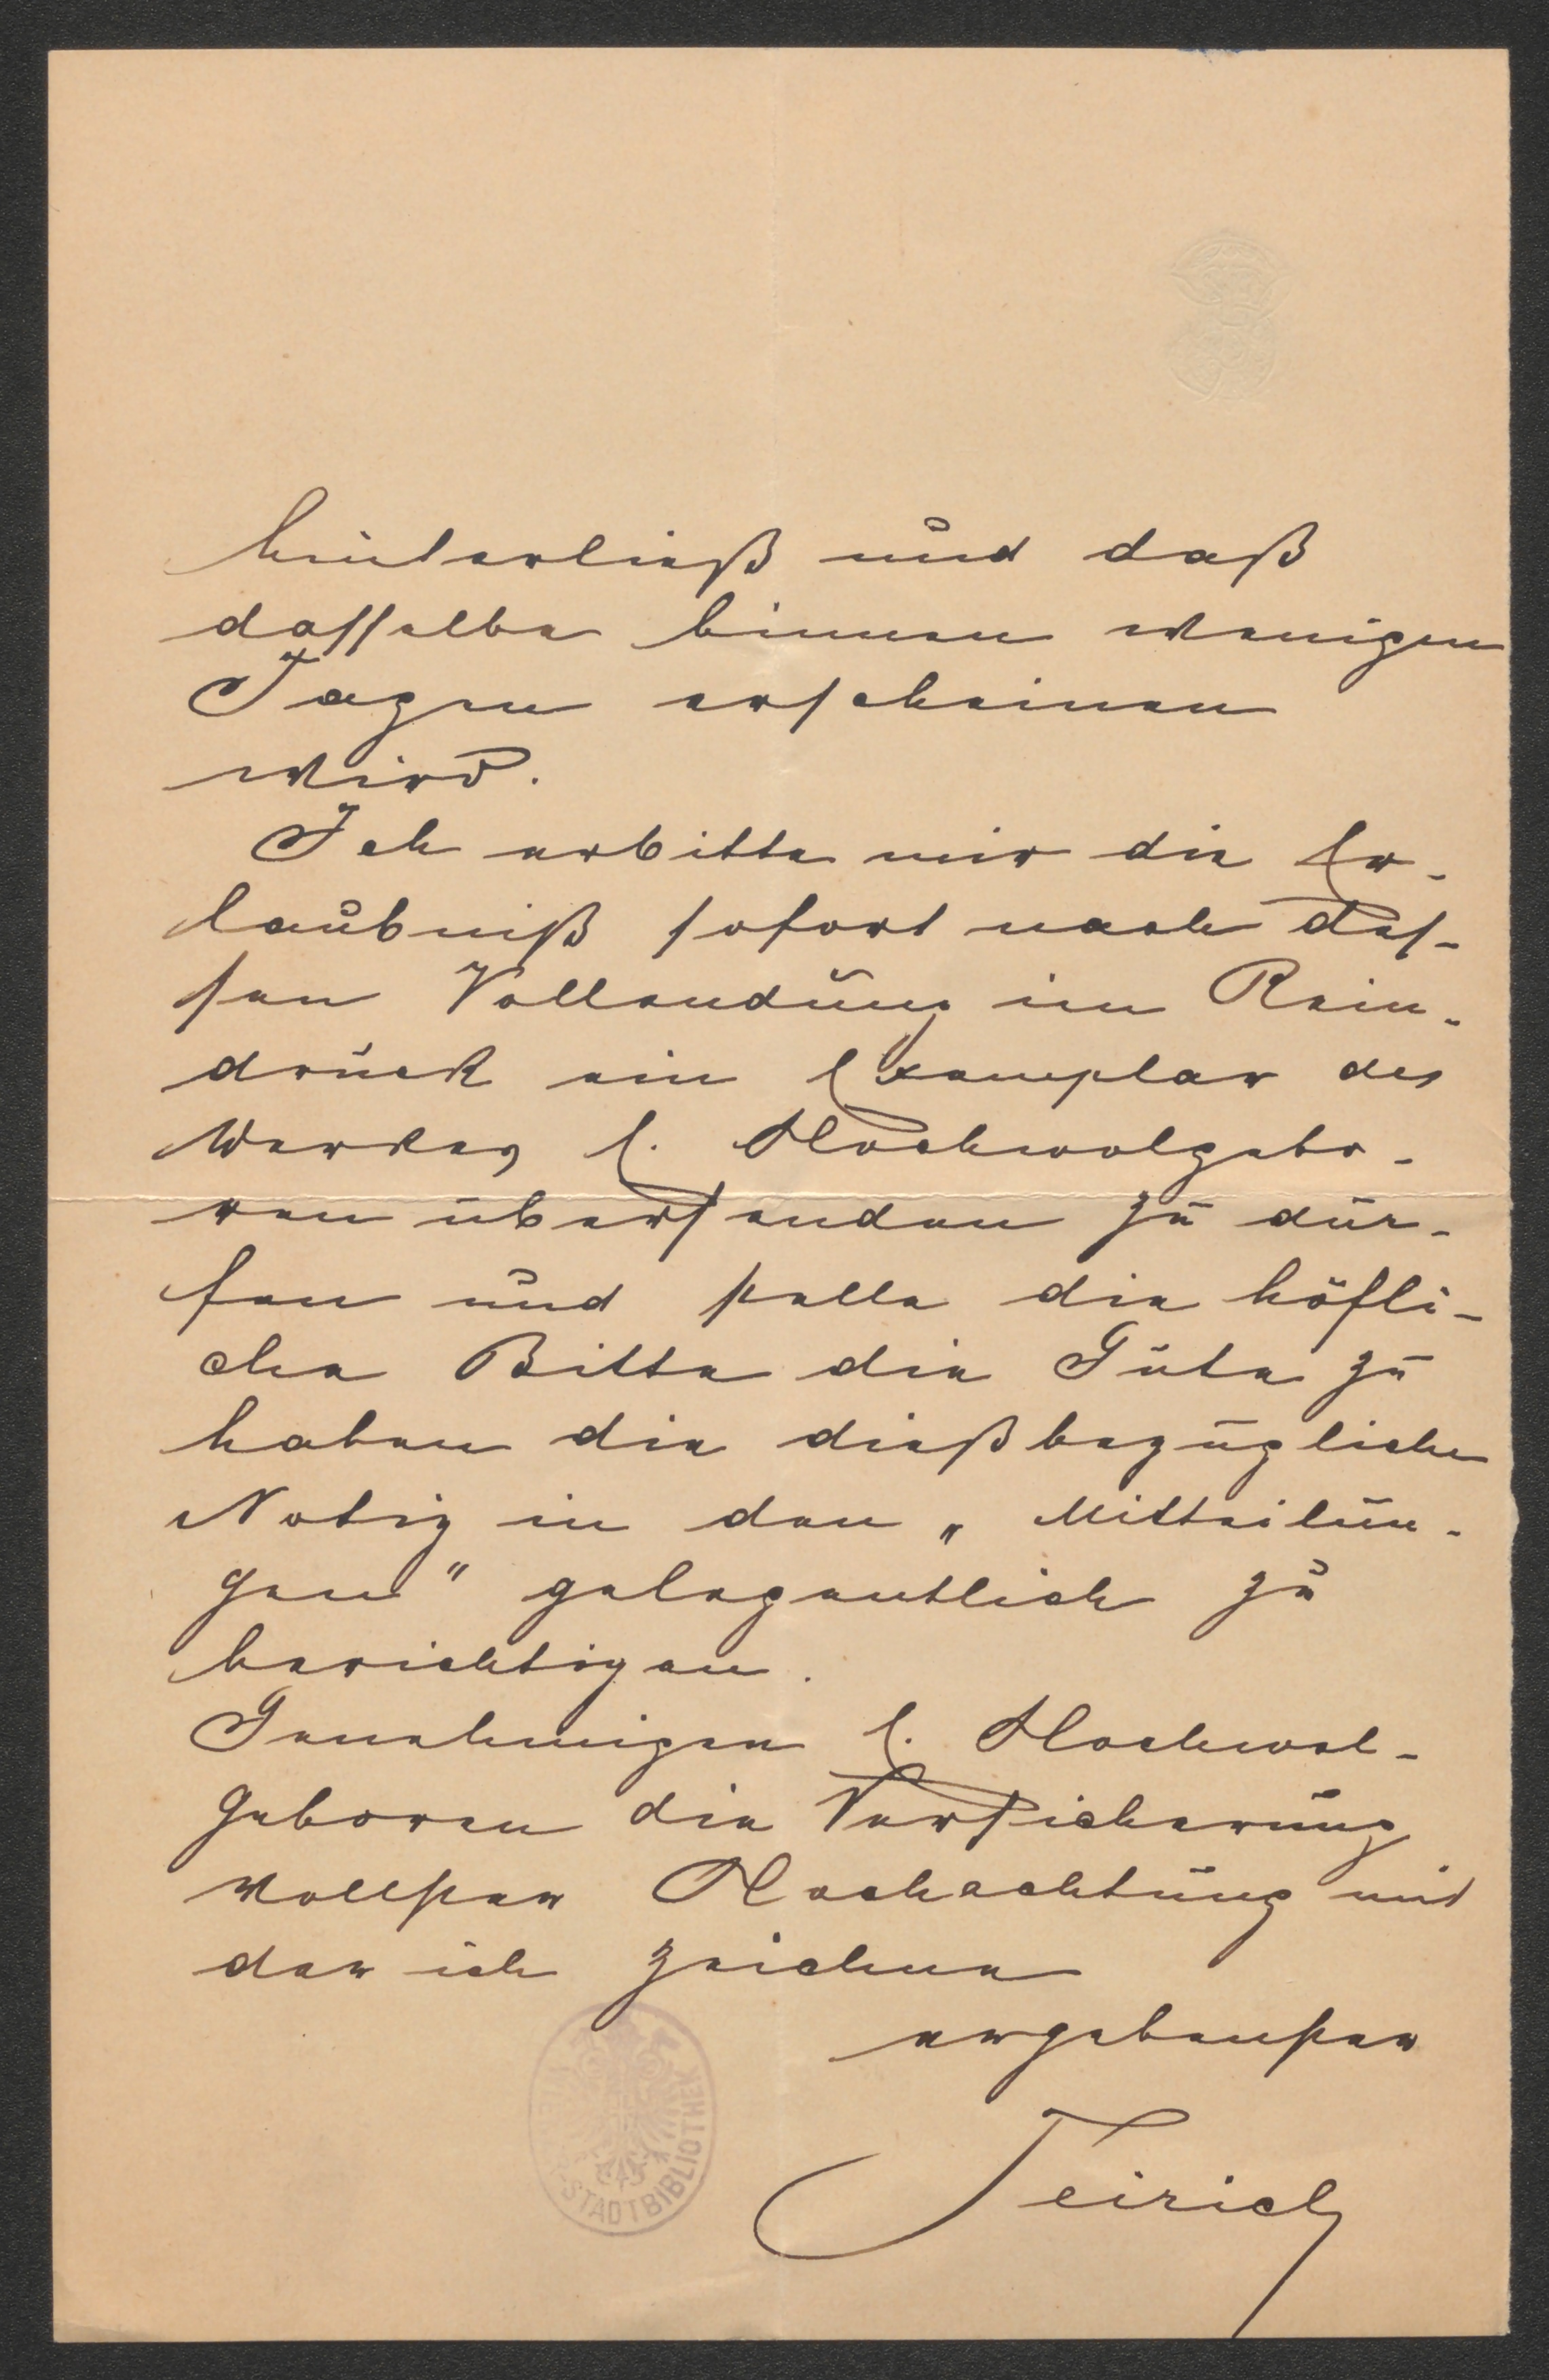 hinterließ und daß
dasselbe binnen wenigen
Tagen erscheinen
wird.
Ich erbitte mir die Er-
laubniß sofort nach des-
sen Vollendung im Rein-
druck ein Exemplar des
Werkes E. Hochwolgebo-
ren übersenden zu dür-
fen und stelle die höfli-
che Bitte die Güte zu
haben die dießbezügliche
Notiz in den „Mitteilun-
gen" gelegentlich zu
berichtigen.
Genehmigen E. Hochwol-
geboren die Versicherung
vollster Hochachtung mit
der ich zeichne
ergebenster
Teirich
STADTBIBLIOTHEK